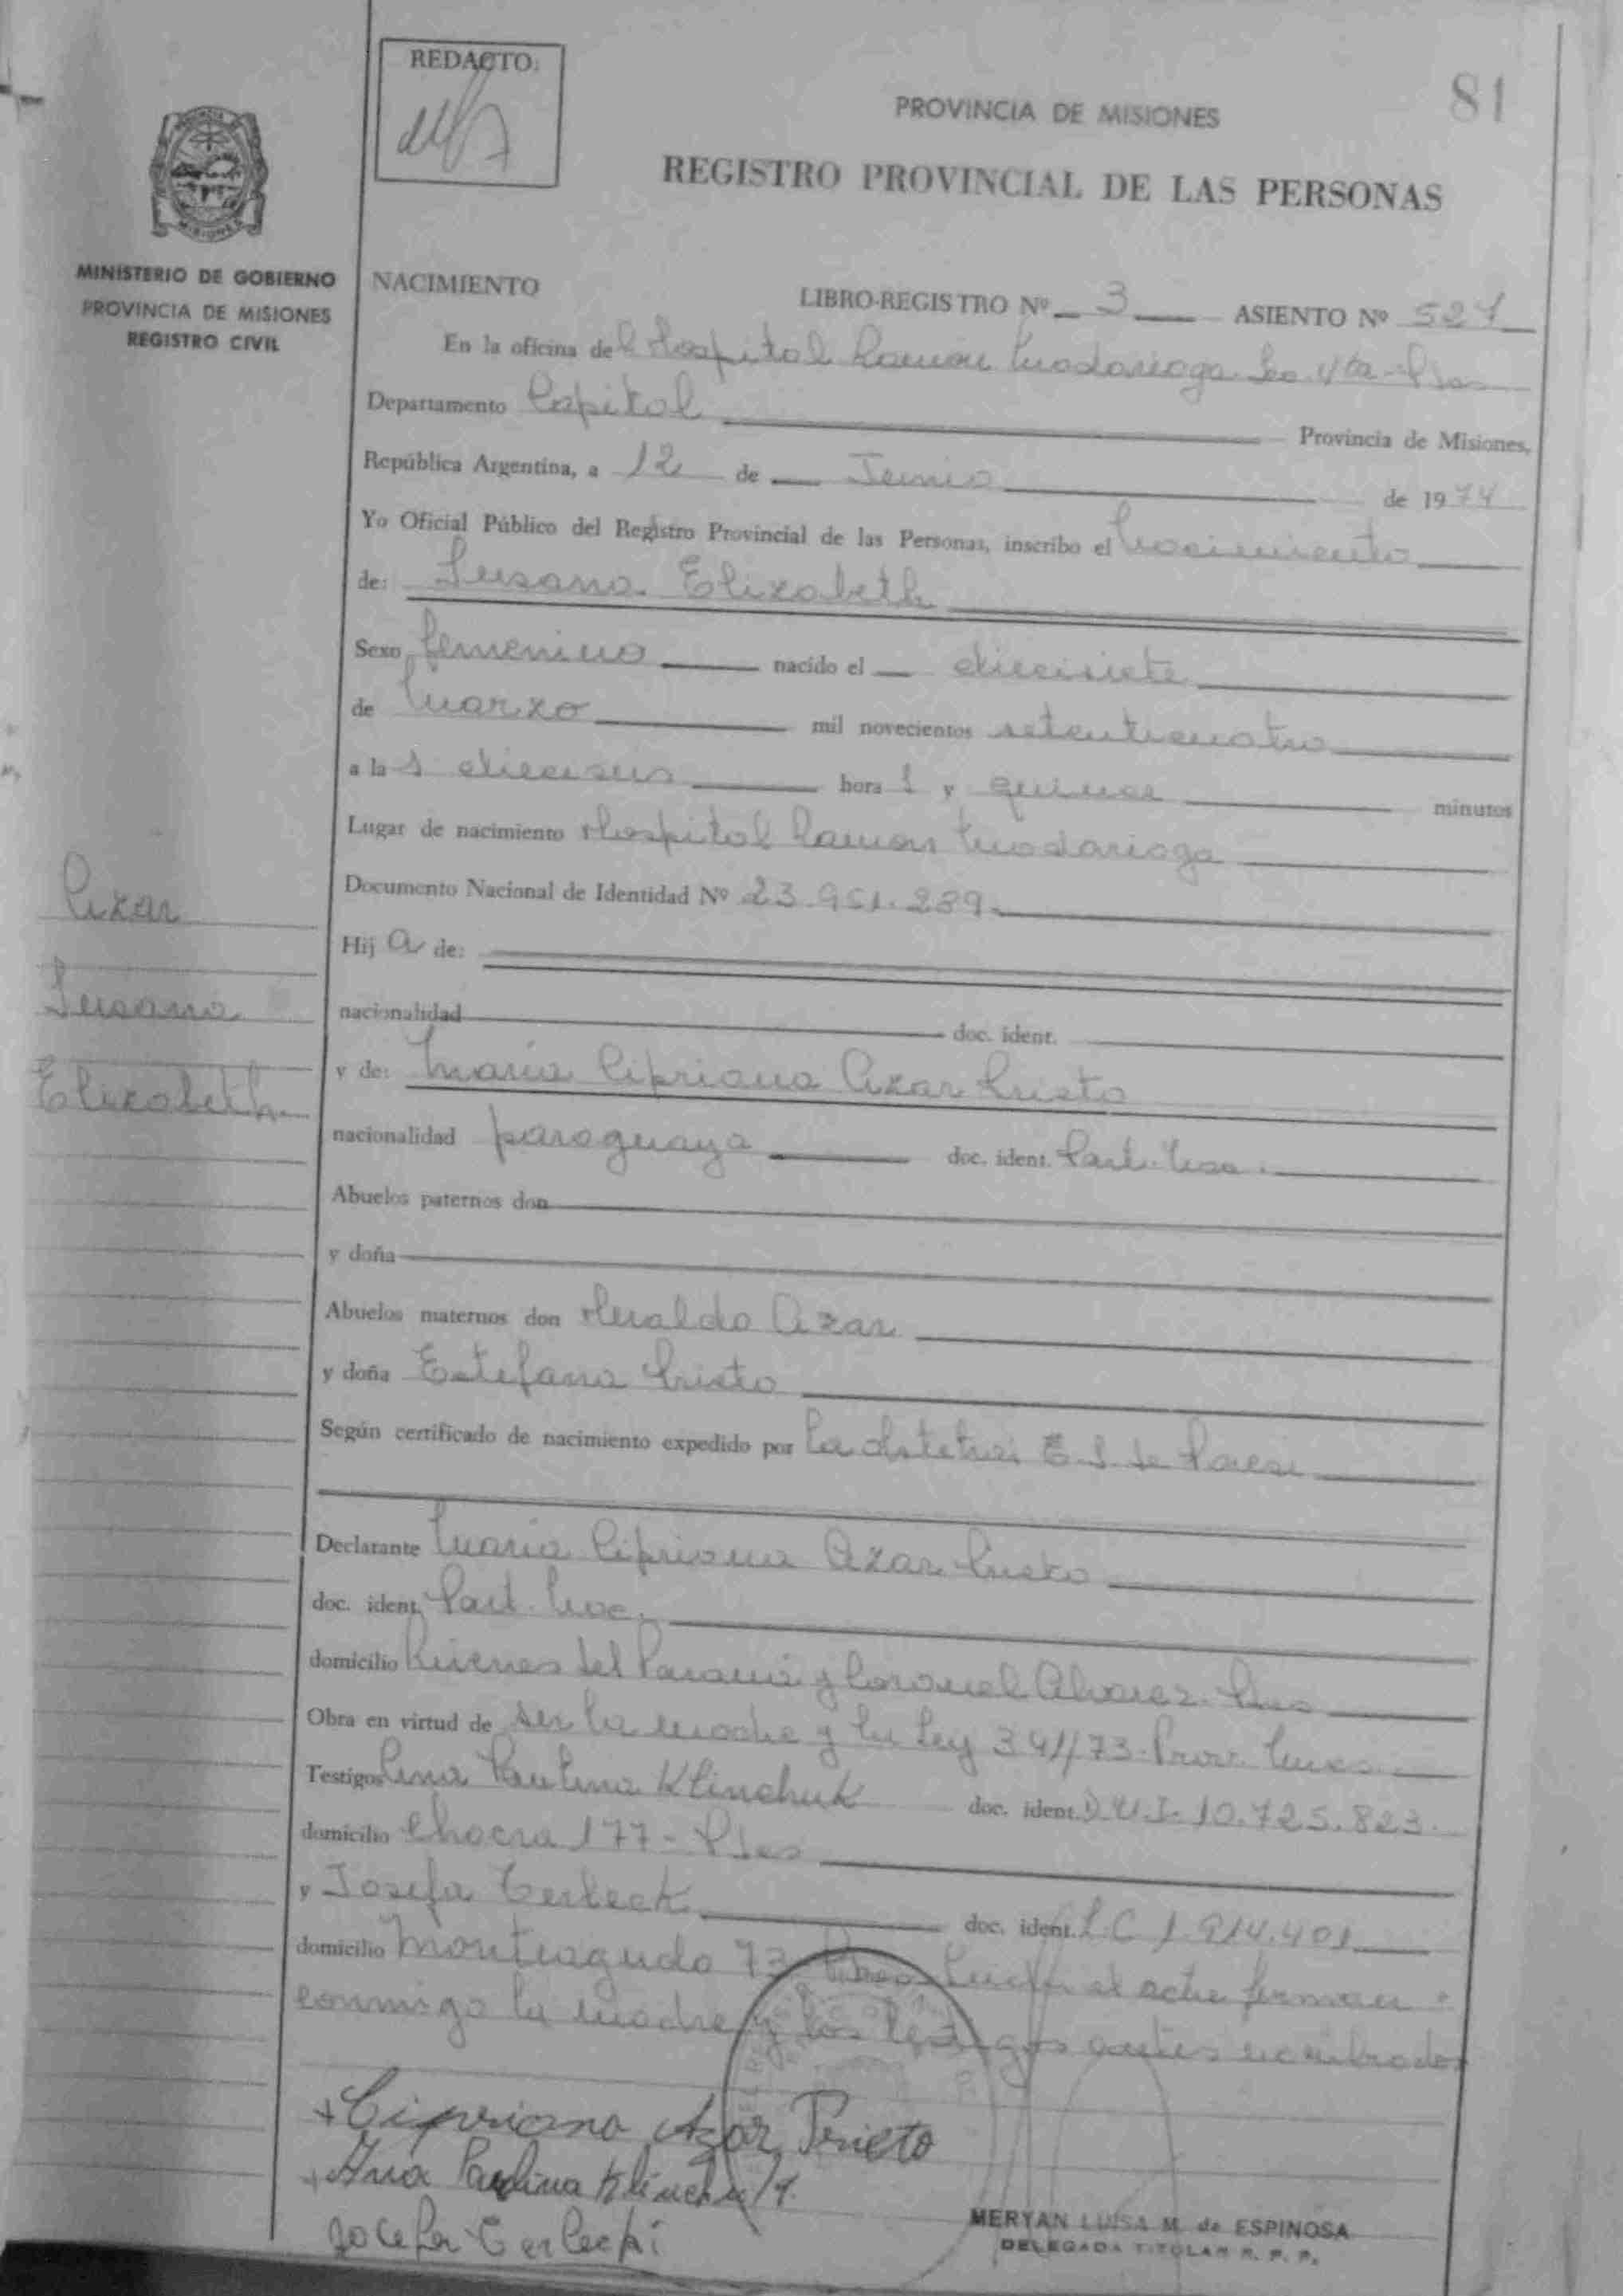 REDACTO:
81
PROVINCIA DE MISIONES
REGISTRO PROVINCIAL DE LAS PERSONAS
MINISTERIO DE GOBIERNO
PROVINCIA DE MISIONES
REGISTRO CIVIL
NACIMIENTO
LIBRO-REGISTRO Nº 3 ASIENTO Nº 527
En la oficina del Hospital Ramon Madariaga
Departamento Capital Provincia de Misiones,
República Argentina, a 12 de Junio de 1974
Yo Oficial Público del Registro Provincial de las Personas, inscribo el Nacimiento
de: Susana Elizabeth
Sexo femenino nacido el diecisiete
de Marzo mil novecientos setenticuatro
a las dieciseis horas y quince minutos
Lugar de nacimiento Hospital Ramon Madariaga
Documento Nacional de Identidad Nº 23.951.289
Azar
Susana
Elizabeth
Hija de:
nacionalidad doc. ident.
y de: Maria Cipriana Azar Prieto
nacionalidad paraguaya doc. ident.
Abuelos paternos don
y doña
Abuelos maternos don Azar
y doña Estefana Prieto
Según certificado de nacimiento expedido por la E. S. de
Declarante Maria Cipriana Azar Prieto
doc. ident.
domicilio del Parana y Coronel Alvarez
Obra en virtud de ser la madre y la Ley 391/73 Prov.
Testigos Ana Paulina Klinchuk doc. ident. D.N.I. 10.725.823.
domicilio Chacra 177 - Pdas
y Josefa doc. ident. L.C 1.914.401
domicilio Monteagudo 73 el acta firman
conmigo la madre y los testigos antes nombrados
Cipriana Azar Prieto
Ana Paulina
MERYAN LUISA M. de ESPINOSA
DELEGADA TITULAR R. P. P.